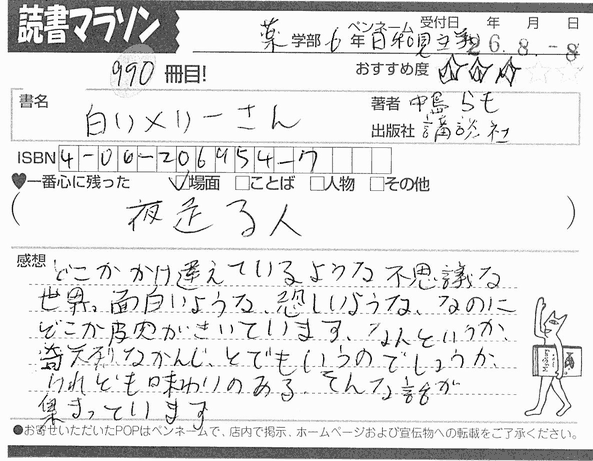 読書マラソン
ペンネーム 受付日 年 月 日
薬 学部 6 年 日和見主義 26. 8. -8
990 冊目!
おすすめ度 ☆☆☆
書名
白いメリーさん
著者 中島らも
出版社 講談社
ISBN 4-06-206954-7
♥一番心に残った ☑場面 □ことば □人物 □その他
( 夜走る人 )
感想
どこかかけ違えているような不思議な
世界。面白いような、恐しいような、なのに
どこか皮肉がきいています、なんというか、
奇天烈なかんじ、とでもいうのでしょうか、
けれども味わりのある、そんな話が
集まっています
●お寄せいただいたPOPはペンネームで、店内で掲示、ホームページおよび宣伝物への転載をご了承ください。